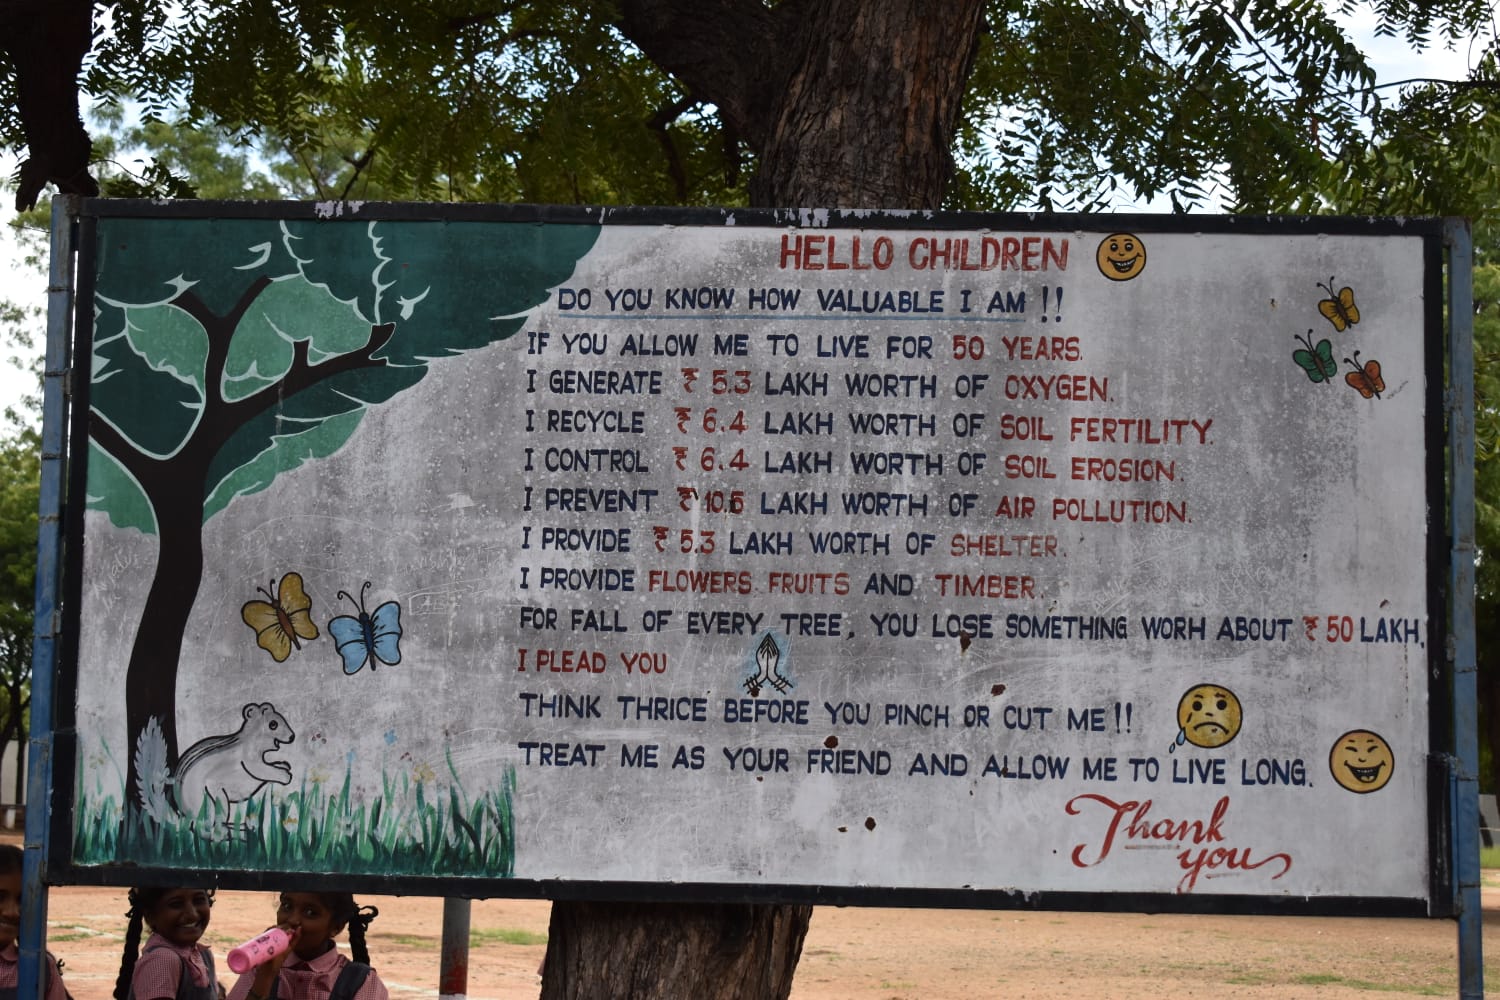 HELLO CHILDREN
DO YOU KNOW HOW VALUABLE I AM !!
IF YOU ALLOW ME TO LIVE FOR 50 YEARS.
I GENERATE ₹ 5.3 LAKH WORTH OF OXYGEN.
I RECYCLE ₹ 6.4 LAKH WORTH OF SOIL FERTILITY.
I CONTROL ₹ 6.4 LAKH WORTH OF SOIL EROSION.
I PREVENT ₹ 10.5 LAKH WORTH OF AIR POLLUTION.
I PROVIDE ₹ 5.3 LAKH WORTH OF SHELTER.
I PROVIDE FLOWERS FRUITS AND TIMBER.
FOR FALL OF EVERY TREE, YOU LOSE SOMETHING WORH ABOUT ₹ 50 LAKH,
I PLEAD YOU
THINK THRICE BEFORE YOU PINCH OR CUT ME !!
TREAT ME AS YOUR FRIEND AND ALLOW ME TO LIVE LONG.
Thank
you